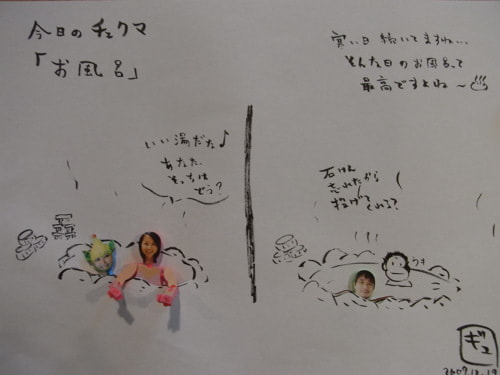 今日のチェクマ
「お風呂」
寒い日続いてますね…
そんな日のお風呂って
最高ですよね〜♨
いい湯だな♪
あなた、
そっちは
どう？
石けん
忘れたから
投げてくれる？
うす
ギュ
2009.12.19